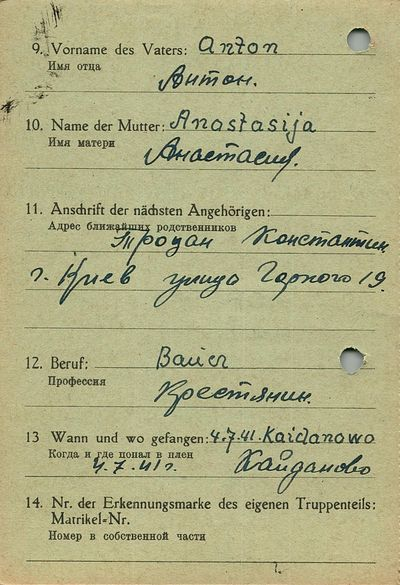 9. Vorname des Vaters: Anton
Имя отца
Антон.
10. Name der Mutter: Anastasija
Имя матери
Анастасия.
11. Anschrift der nächsten Angehörigen:
Адрес ближайших родственников
Троцан Константин.
г. Киев улица Горкого 19.
12. Beruf: Bauer
Профессия
Крестянин.
13 Wann und wo gefangen: 4.7.41. Kaidanowo
Когда и где попал в плен
4.7.41г. Кайданово
14. Nr. der Erkennungsmarke des eigenen Truppenteils:
Matrikel-Nr.
Номер в собственной части